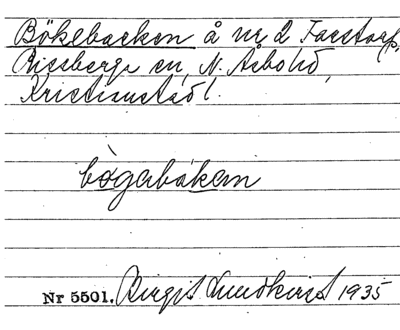 Bökebacken å nr 2 Farstorp,
Riseberga sn, N. Åsbo hd,
Kristianstad l.
bògabákan
Nr 5501. Birgit Lundkvist 1935